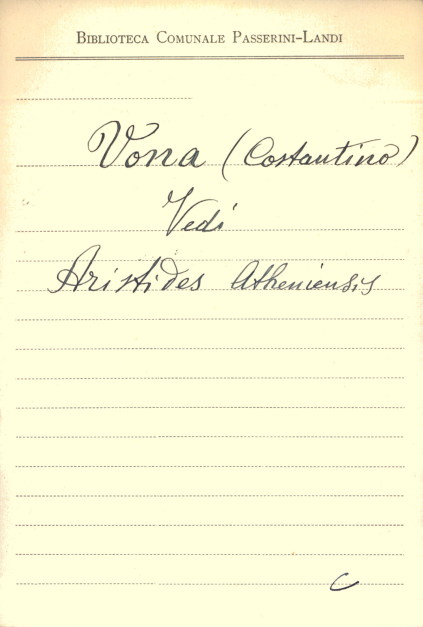 BIBLIOTECA COMUNALE PASSERINI-LANDI
Vona (Costantino)
Vedi
Aristides Atheniensis
C